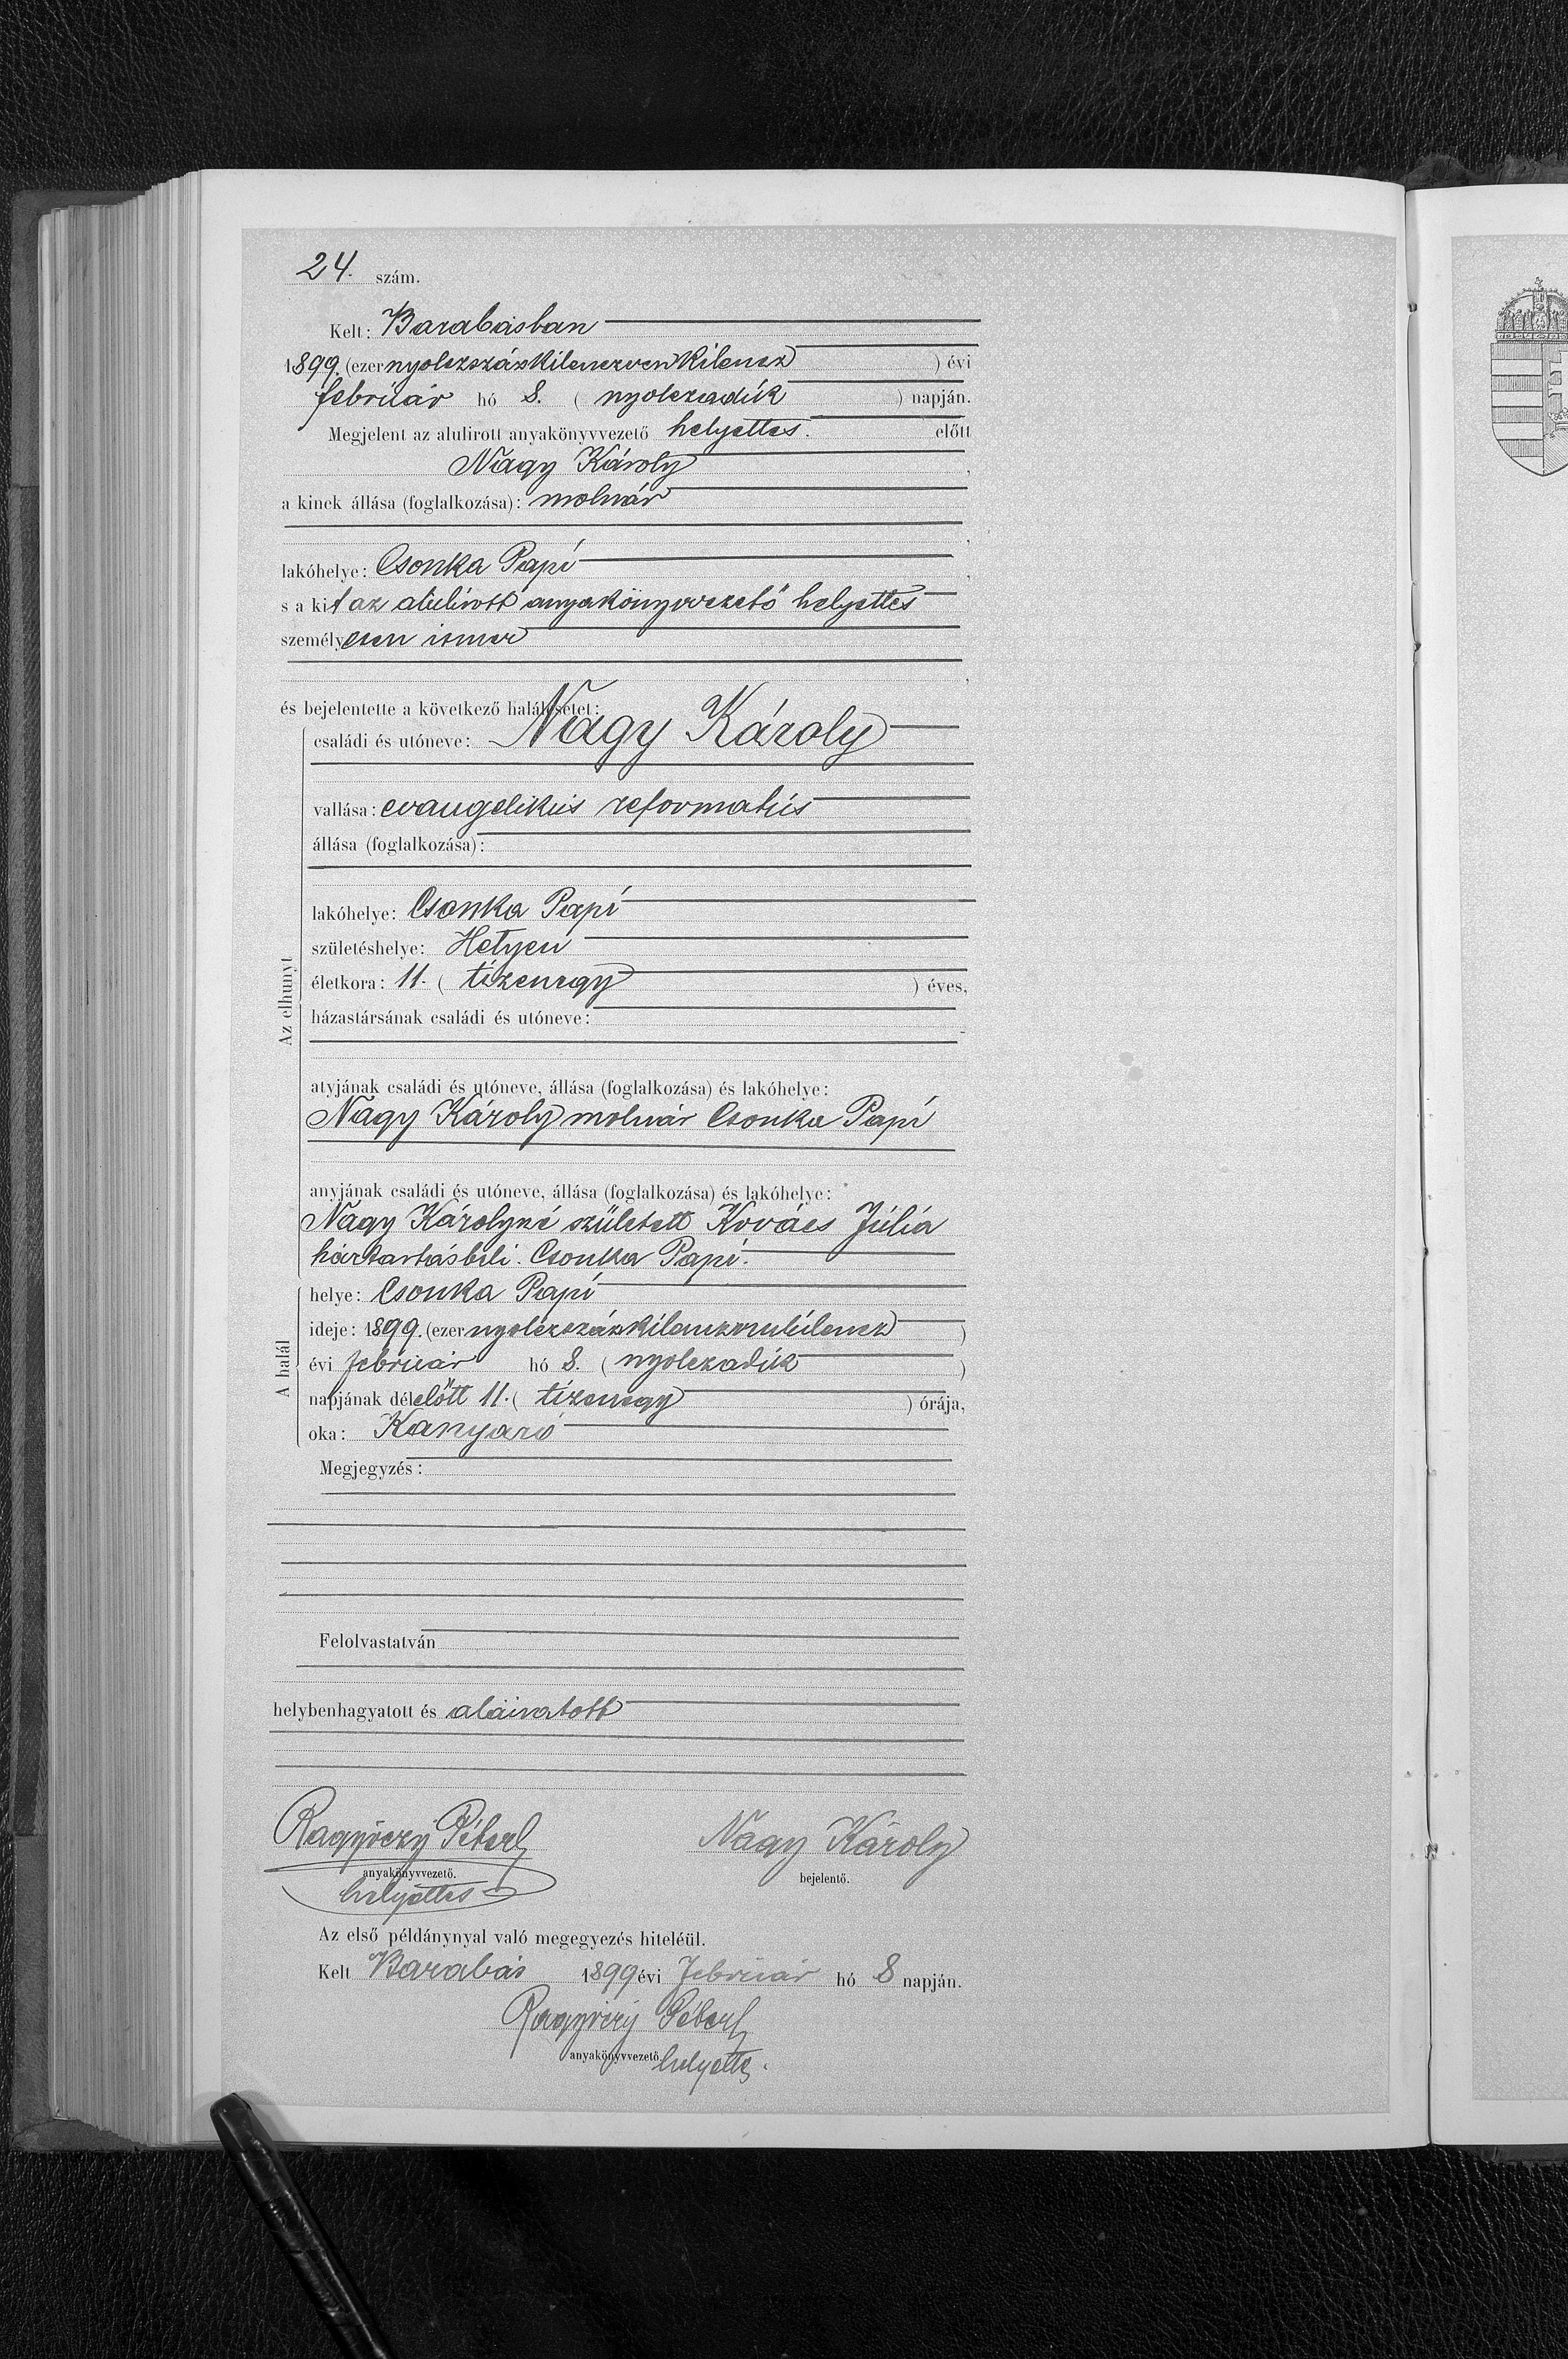 24. szám.
Kelt: Barabásban
1899. (ezer nyolczszázkilenczvenkilencz) évi
február hó 8. (nyolczadik) napján.
Megjelent az alulirott anyakönyvvezető helyettes. előtt
Nagy Károly,
a kinek állása (foglalkozása): molnár
,
lakóhelye: Csonka Papi,
s a kit az alulírott anyakönyvvezető helyettes
személyesen ismer
,
és bejelentette a következő halálesetet:
Az elhunyt
családi és utóneve: Nagy Károly
vallása: evangelikus református
állása (foglalkozása):
lakóhelye: Csonka Papi
születéshelye: Hetyen
életkora: 11. (tizenegy) éves,
házastársának családi és utóneve:
atyjának családi és utóneve, állása (foglalkozása) és lakóhelye:
Nagy Károly molnár Csonka Papi
anyjának családi és utóneve, állása (foglalkozása) és lakóhelye:
Nagy Károlyné született Kovács Júlia
háztartásbeli. Csonka Papi.
A halál
helye: Csonka Papi
ideje: 1899. (ezer nyolczszázkilenczvenkilencz)
évi február hó 8. (nyolczadik)
napjának délelőtt 11. (tizenegy) órája,
oka: Kanyaró
Megjegyzés:
Felolvastatván
helybenhagyatott és aláiratott
Péter Nagy Károly
anyakönyvvezető. bejelentő.
helyettes
Az első példánynyal való megegyezés hiteléül.
Kelt Barabás 1899 évi Február hó 8 napján.
Péter
anyakönyvvezető helyettes.